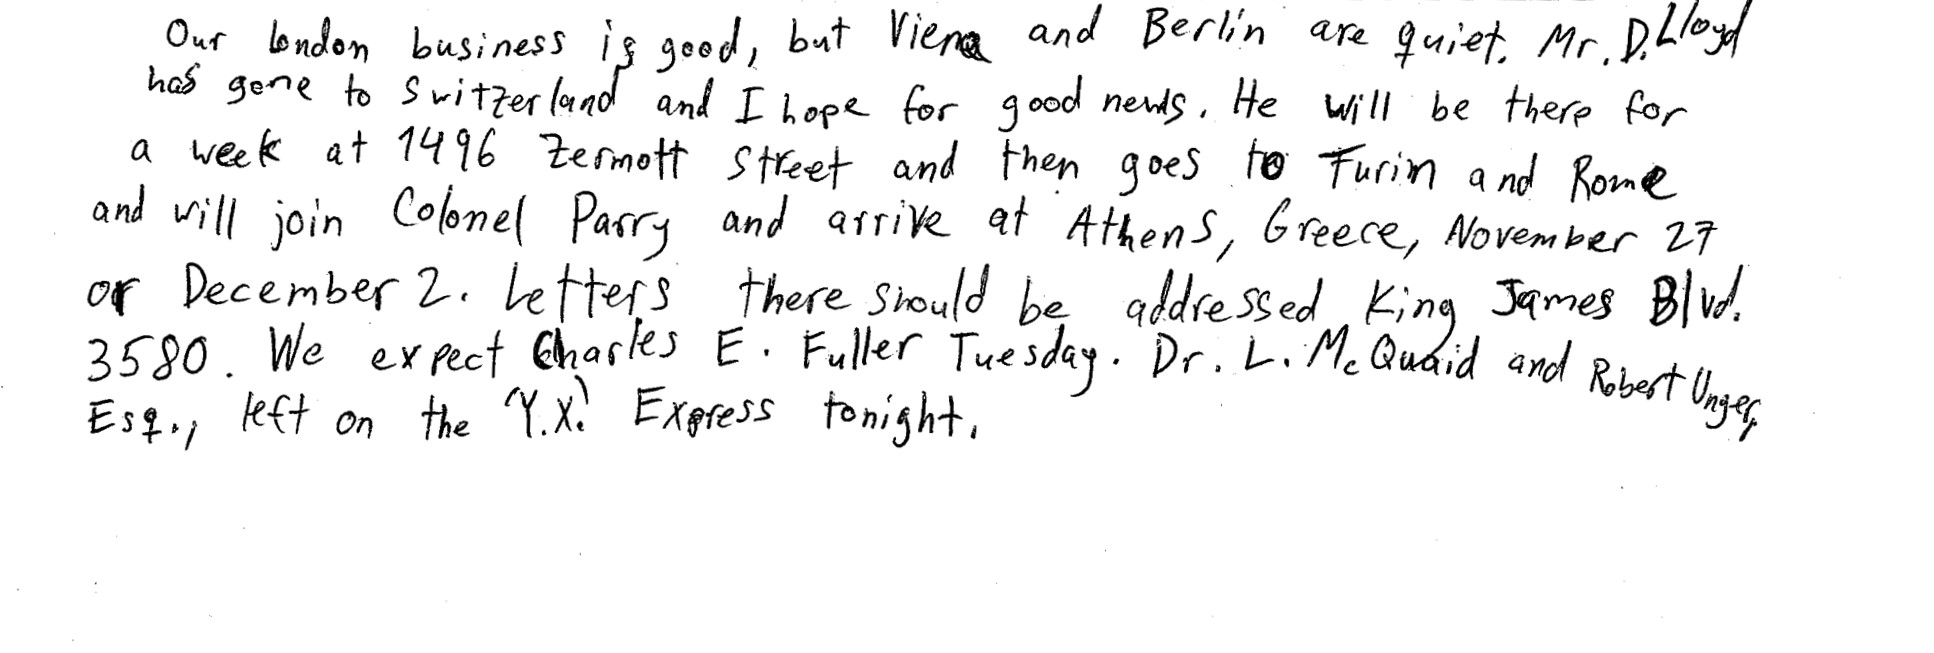 Our London business is good, but Viena and Berlin are quiet. Mr. D. Lloyd
has gone to Switzerland and I hope for good news. He will be there for
a week at 1496 Zermott Street and then goes to Turin and Rome
and will join Colonel Parry and arrive at Athens, Greece, November 27
or December 2. Letters there should be addressed King James Blvd.
3580. We expect Charles E. Fuller Tuesday. Dr. L. McQuaid and Robert Unger,
Esq., left on the "Y.X." Express tonight.